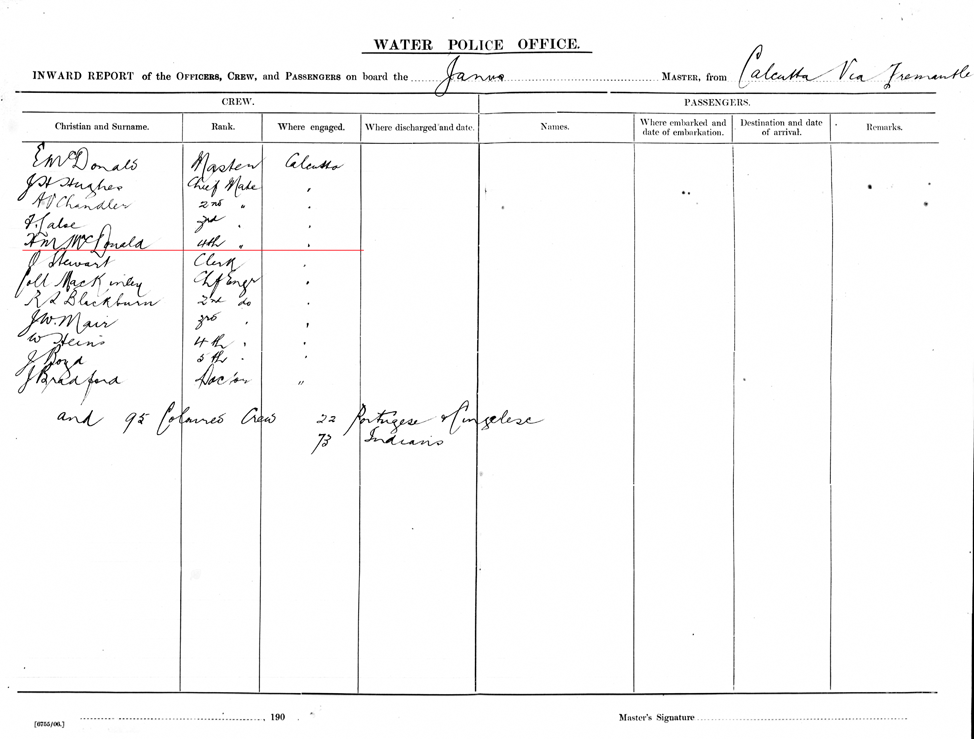 WATER POLICE OFFICE.
INWARD REPORT of the OFFICERS, CREW, and PASSENGERS on board the Janus MASTER, from Calcutta Via Fremantle
CREW. PASSENGERS.
Christian and Surname. Rank. Where engaged. Where discharged and date. Names. Where embarked and date of embarkation. Destination and date of arrival. Remarks.
E McDonald Master Calcutta
J H Hughes Chief Mate "
A V Chandler 2nd "
3rd "
McDonald 4th "
J Stewart Clerk "
Coll MacKinley Chf Engr "
R S Blackburn 2nd do "
J W. Mair 3rd "
W Heins 4th "
J Boyd 5th "
J Bradford Doctor "
and 95 Coloured Crew 22 Portugese & Cingelese
73 Indians
[6755/06.] 190 . Master's Signature